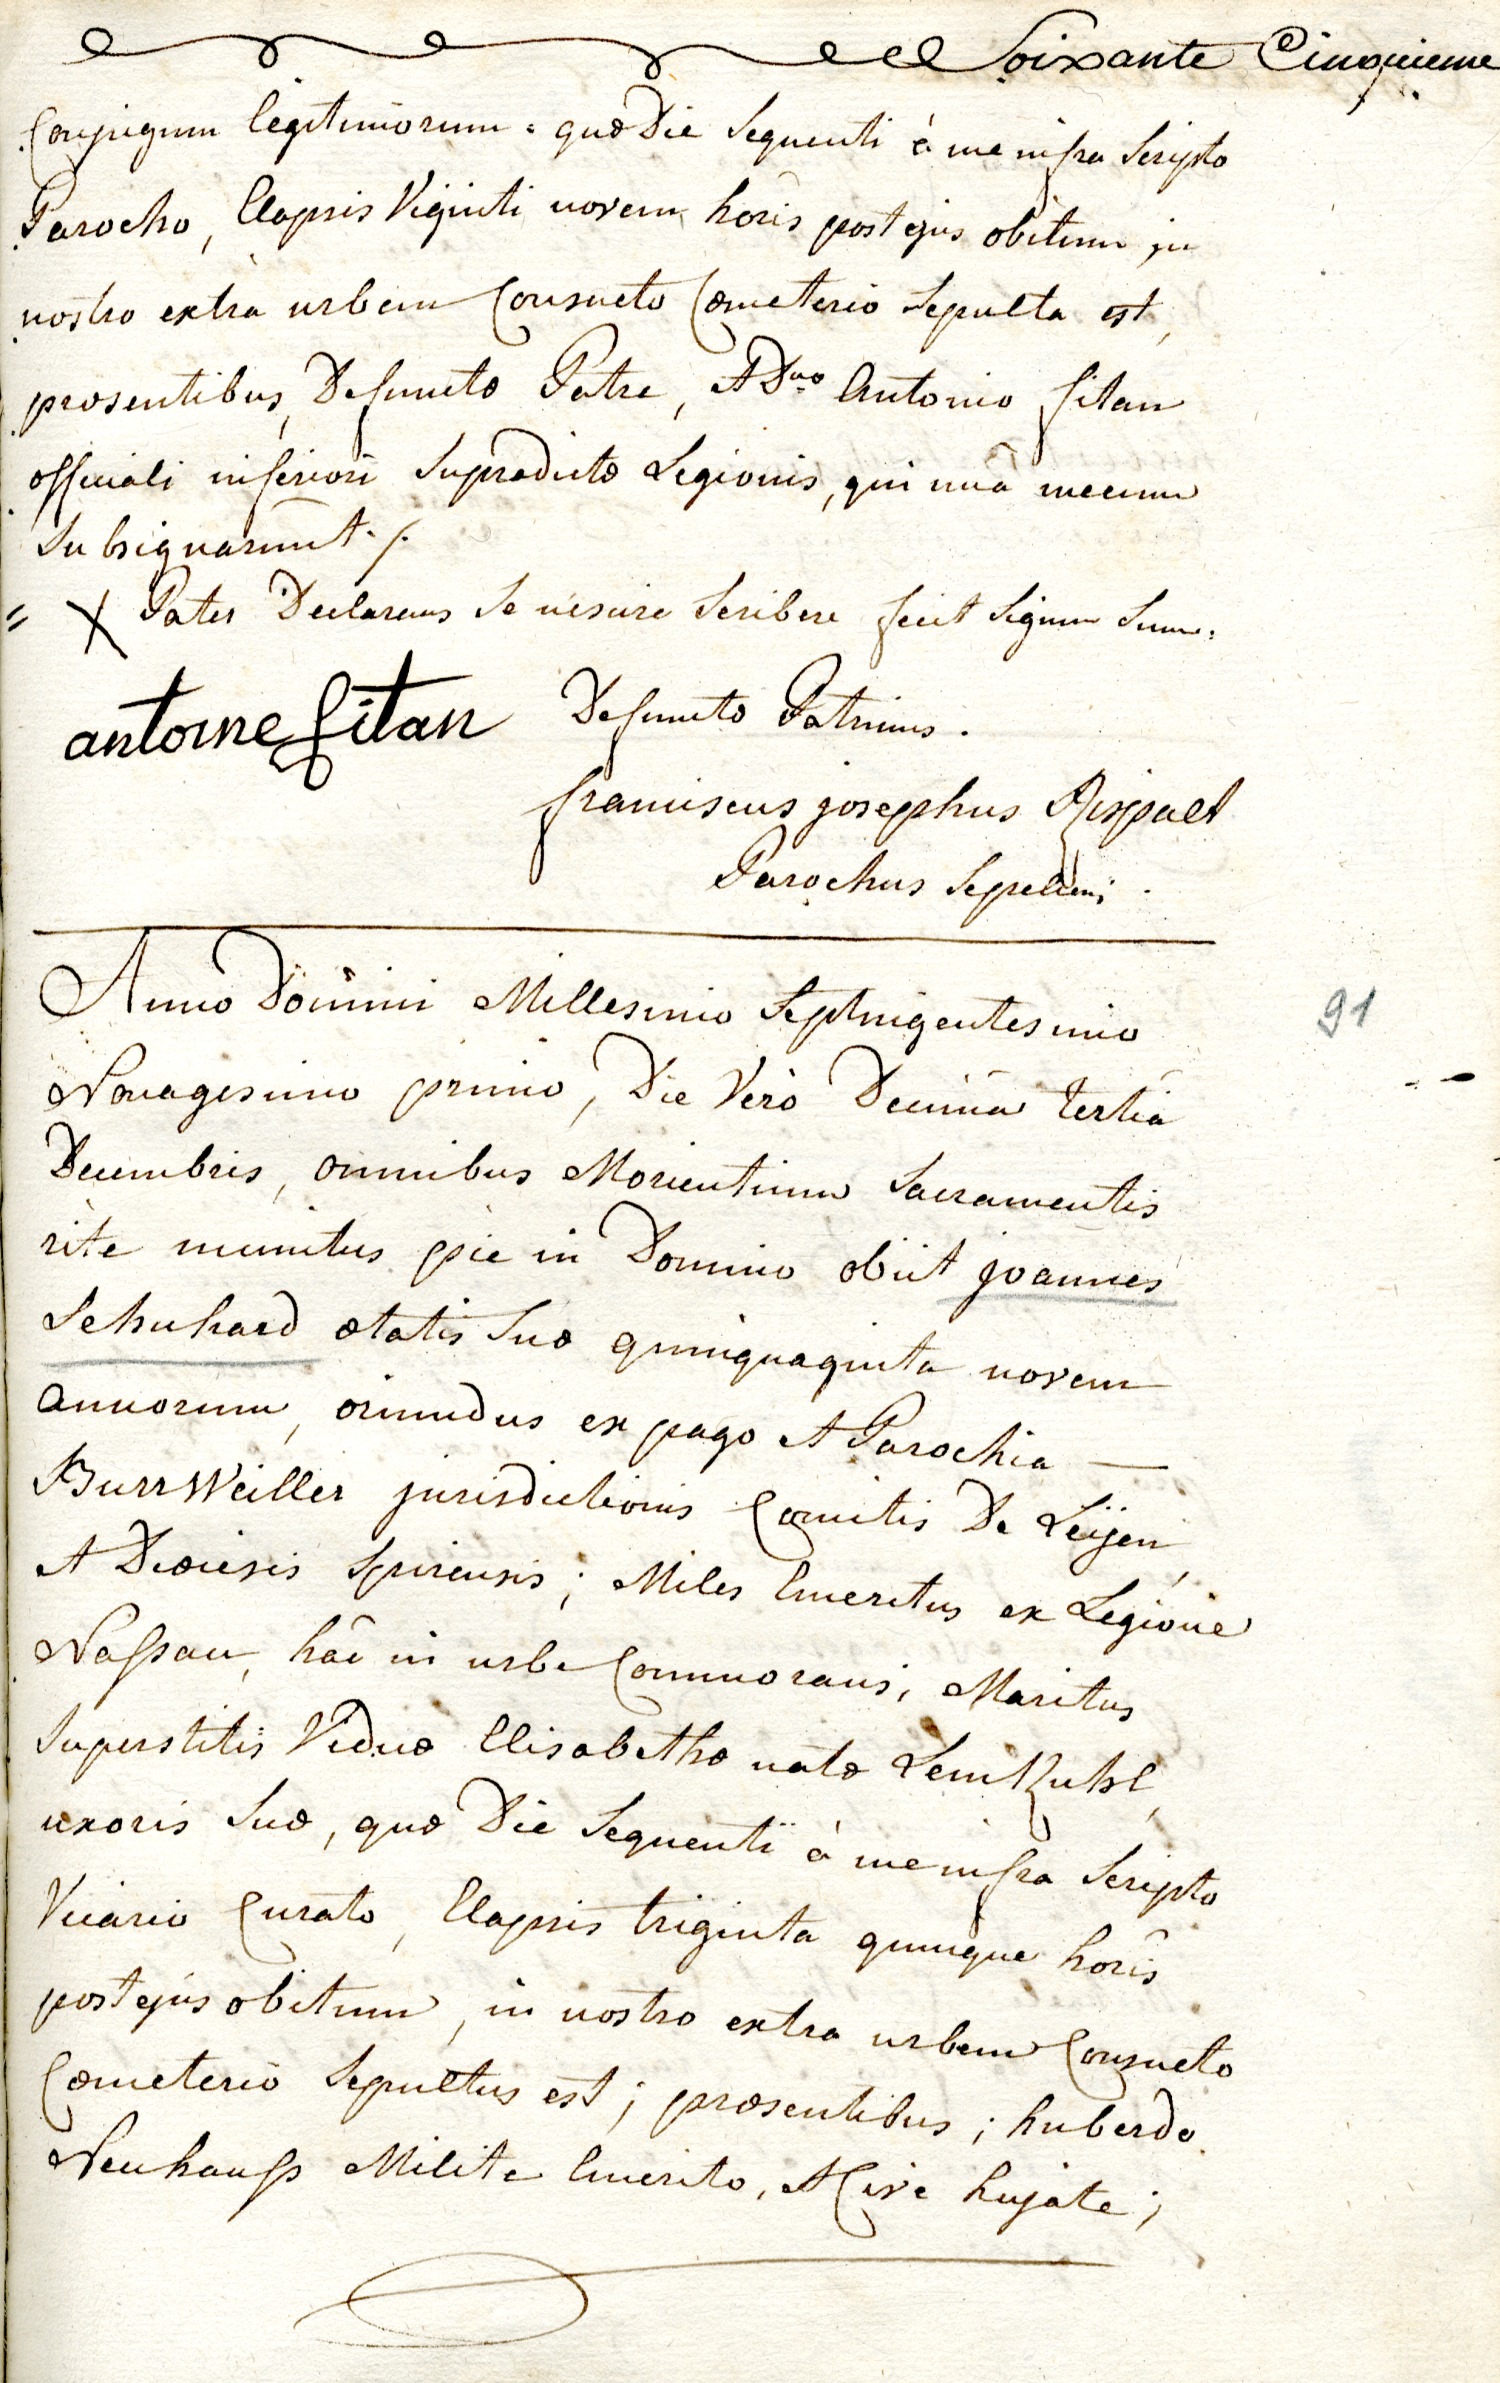 Soixante Cinquieme
Conjugum legitimorum: quæ Die Sequenti à me infra Scripto
Parocho, Elapsis Viginti novem horis post ejus obitum in
nostro extra urbem Consueto Cœmeterio Sepulta est,
præsentibus, Defunctæ Patre, et Dno Antonio fitan
officiali inferiori Supradictæ Legionis, qui unà mecum
Subsignarunt ./.
= X Pater Declarans Se nescire Scribere fecit Signum Suum.
antoine fitan Defunctæ Patrinus.
franciscus josephus Rispalt
Parochus Sepeliens.
Anno Domini Millesimo Septingentesimo
91
Nonagesimo primo, Die Verò Decimâ tertiâ
Decembris, omnibus Morientium Sacramentis
rite munitus pie in Domino obiit joannes
Schuhard ætatis Suæ quinquaginta novem
annorum, oriundus ex pago et Parochia —
BurrWeiller jurisdictionis Comitis De Leÿen,
et Diœcesis Spirensis; Miles Emeritus ex Legione
Nassau, hâc in urbe Commorans, Maritus
Superstitis Viduæ Elisabethæ natæ LemKuhl,
uxoris Suæ, quæ Die Sequenti à me infra Scripto
Vicario Curato, Elapsis triginta quinque horis
post ejus obitum, in nostro extra urbem Consueto
Cœmeterio Sepultus est; præsentibus; huberdo
Neuhauss Milite Emerito, et Cive hujate;